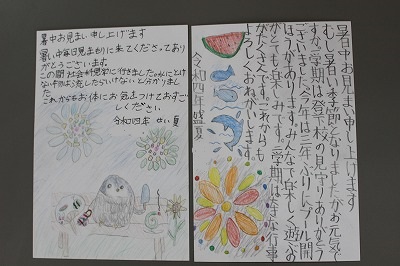 暑中お見まい申し上げます
暑い中毎日見まもりに来てくださってあり
がとうございます。
この間、社会科見学に行きました。水にとけ
ない物は流したらいけないと分かりまし
た。
これからもお体にお気をつけておすご
しください。
令和四年 せい夏
暑中お見まい申し上げます
むし暑い季節となりましたがお元気で
すか。一学期は登下校の見守りありがとう
ございました。今年は三年ぶりにプール開
きがあります。みんなで楽しく遊べ
とても楽しみです。二学期は大きな行事
がたくさんです。これからも
よろしくおねがいします。
令和四年盛夏